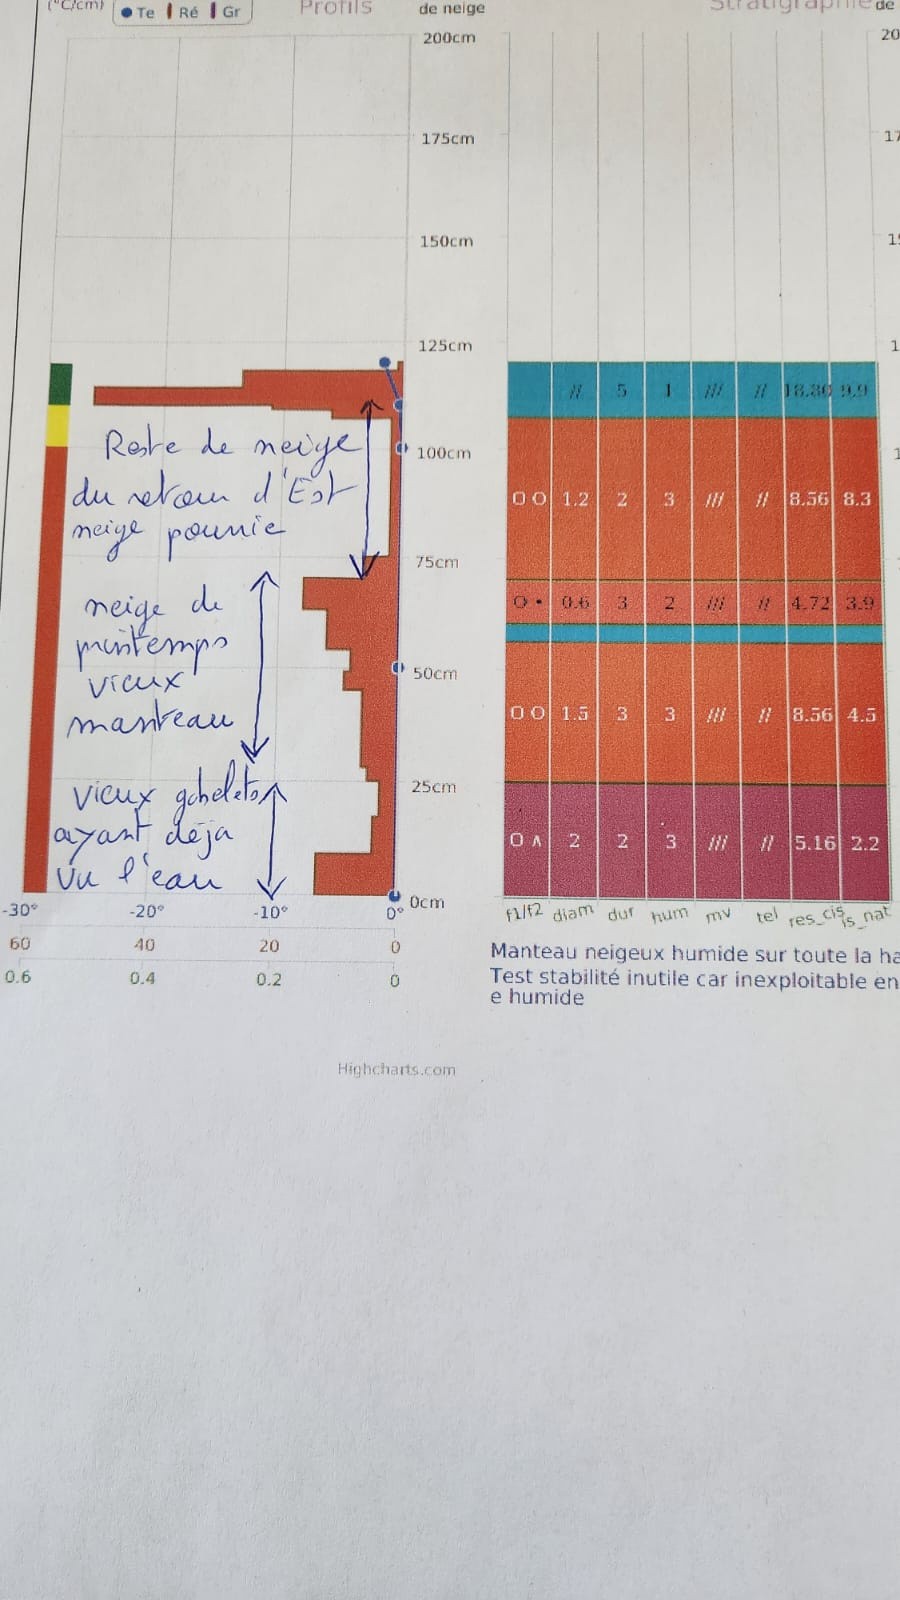 (°C/cm)
Te Ré Gr
Profils
de neige
Stratigraphie
de
200cm
175cm
150cm
125cm
100cm
75cm
50cm
25cm
0cm
20
17
1
1
Reste de neige
du retour d'Est
neige pourrie
neige de
printemps
vieux
manteau
vieux gobelets
ayant déja
vu l'eau
// 5 1 /// // 18.86 9.9
O O 1.2 2 3 /// // 8.56 8.3
O • 0.6 3 2 /// // 4.72 3.9
O O 1.5 3 3 /// // 8.56 4.5
O ʌ 2 2 3 /// // 5.16 2.2
-30° -20° -10° 0°
60 40 20 0
0.6 0.4 0.2 0
f1/f2 diam dur hum mv tel res_cis is_nat
Manteau neigeux humide sur toute la ha
Test stabilité inutile car inexploitable en
e humide
Highcharts.com